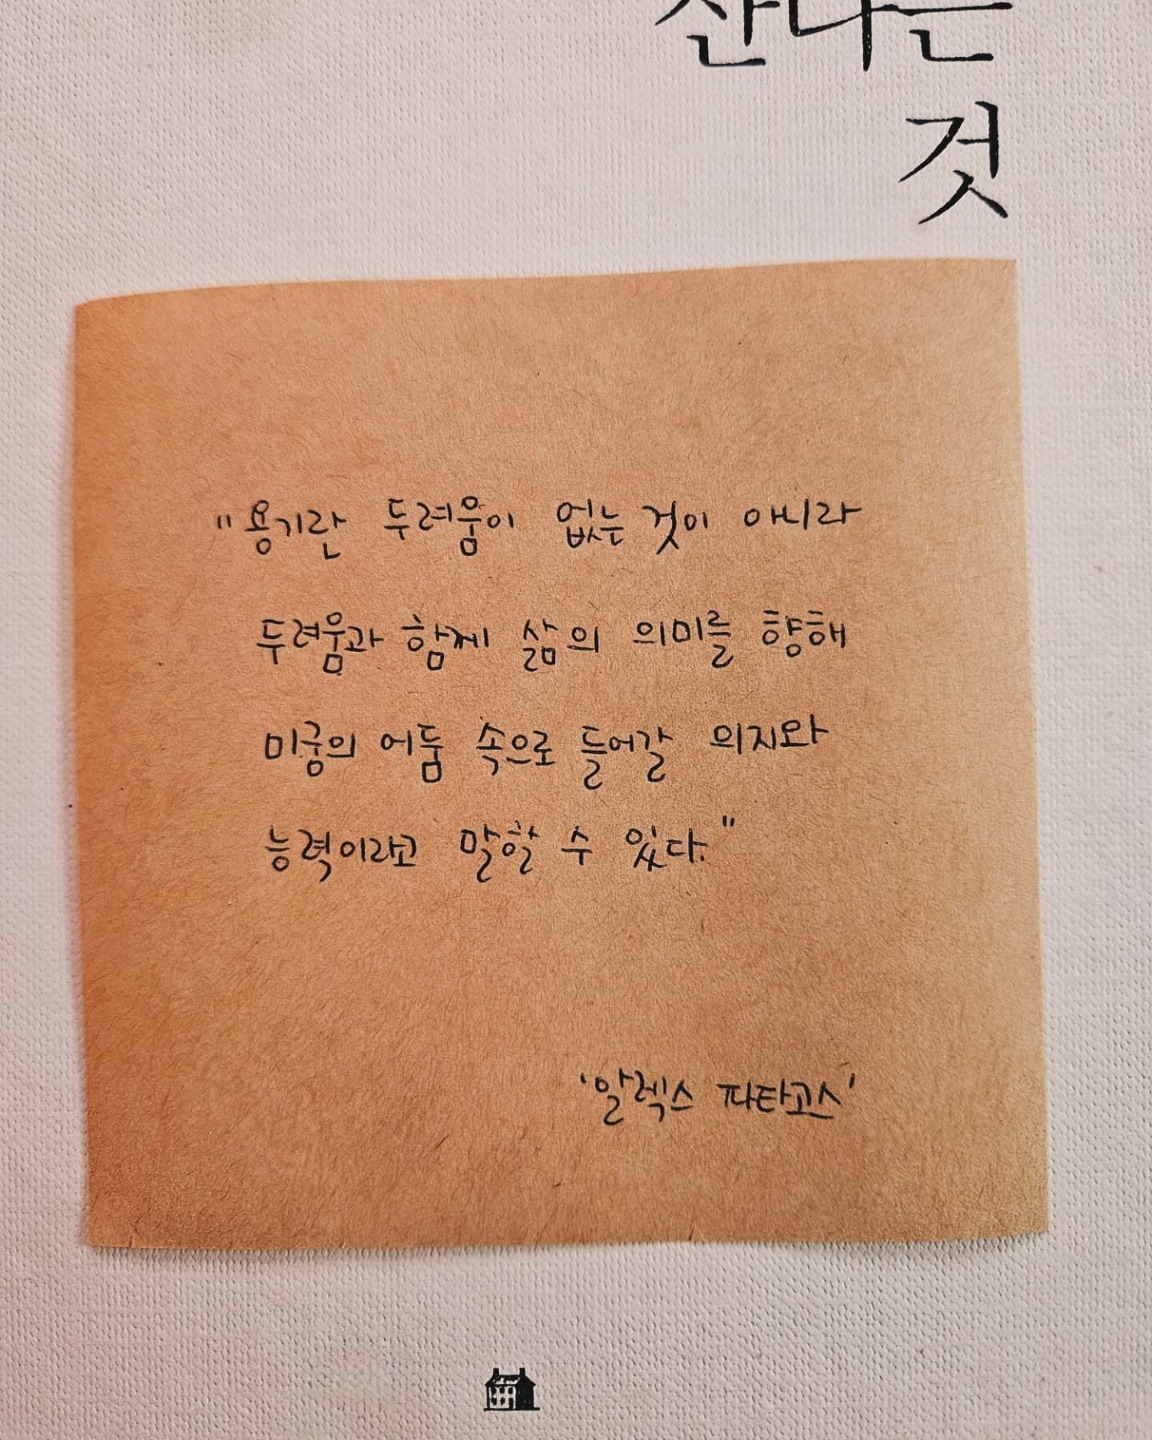 산다는
것
"용기란 두려움이 없는 것이 아니라
두려움과 함께 삶의 의미를 향해
미궁의 어둠 속으로 들어갈 의지와
능력이라고 말할 수 있다."
'알렉스 파타코스'